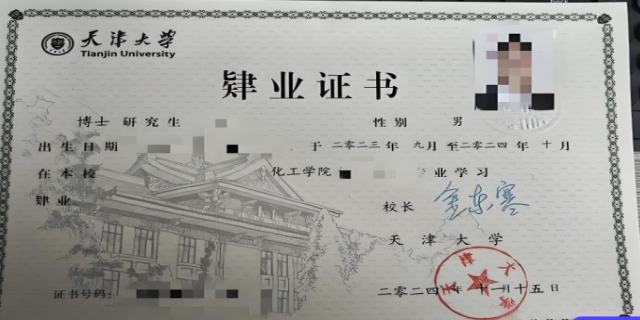 天津大学
Tianjin University
肄业证书
博士 研究生 性别 男
出生日期 于 二〇二三 年 九 月至 二〇二四 年 十 月
在本校 化工学院 专业学习
肄业 校长 金东寒
天津大学
证书号码: 二〇二四年十一月十五日